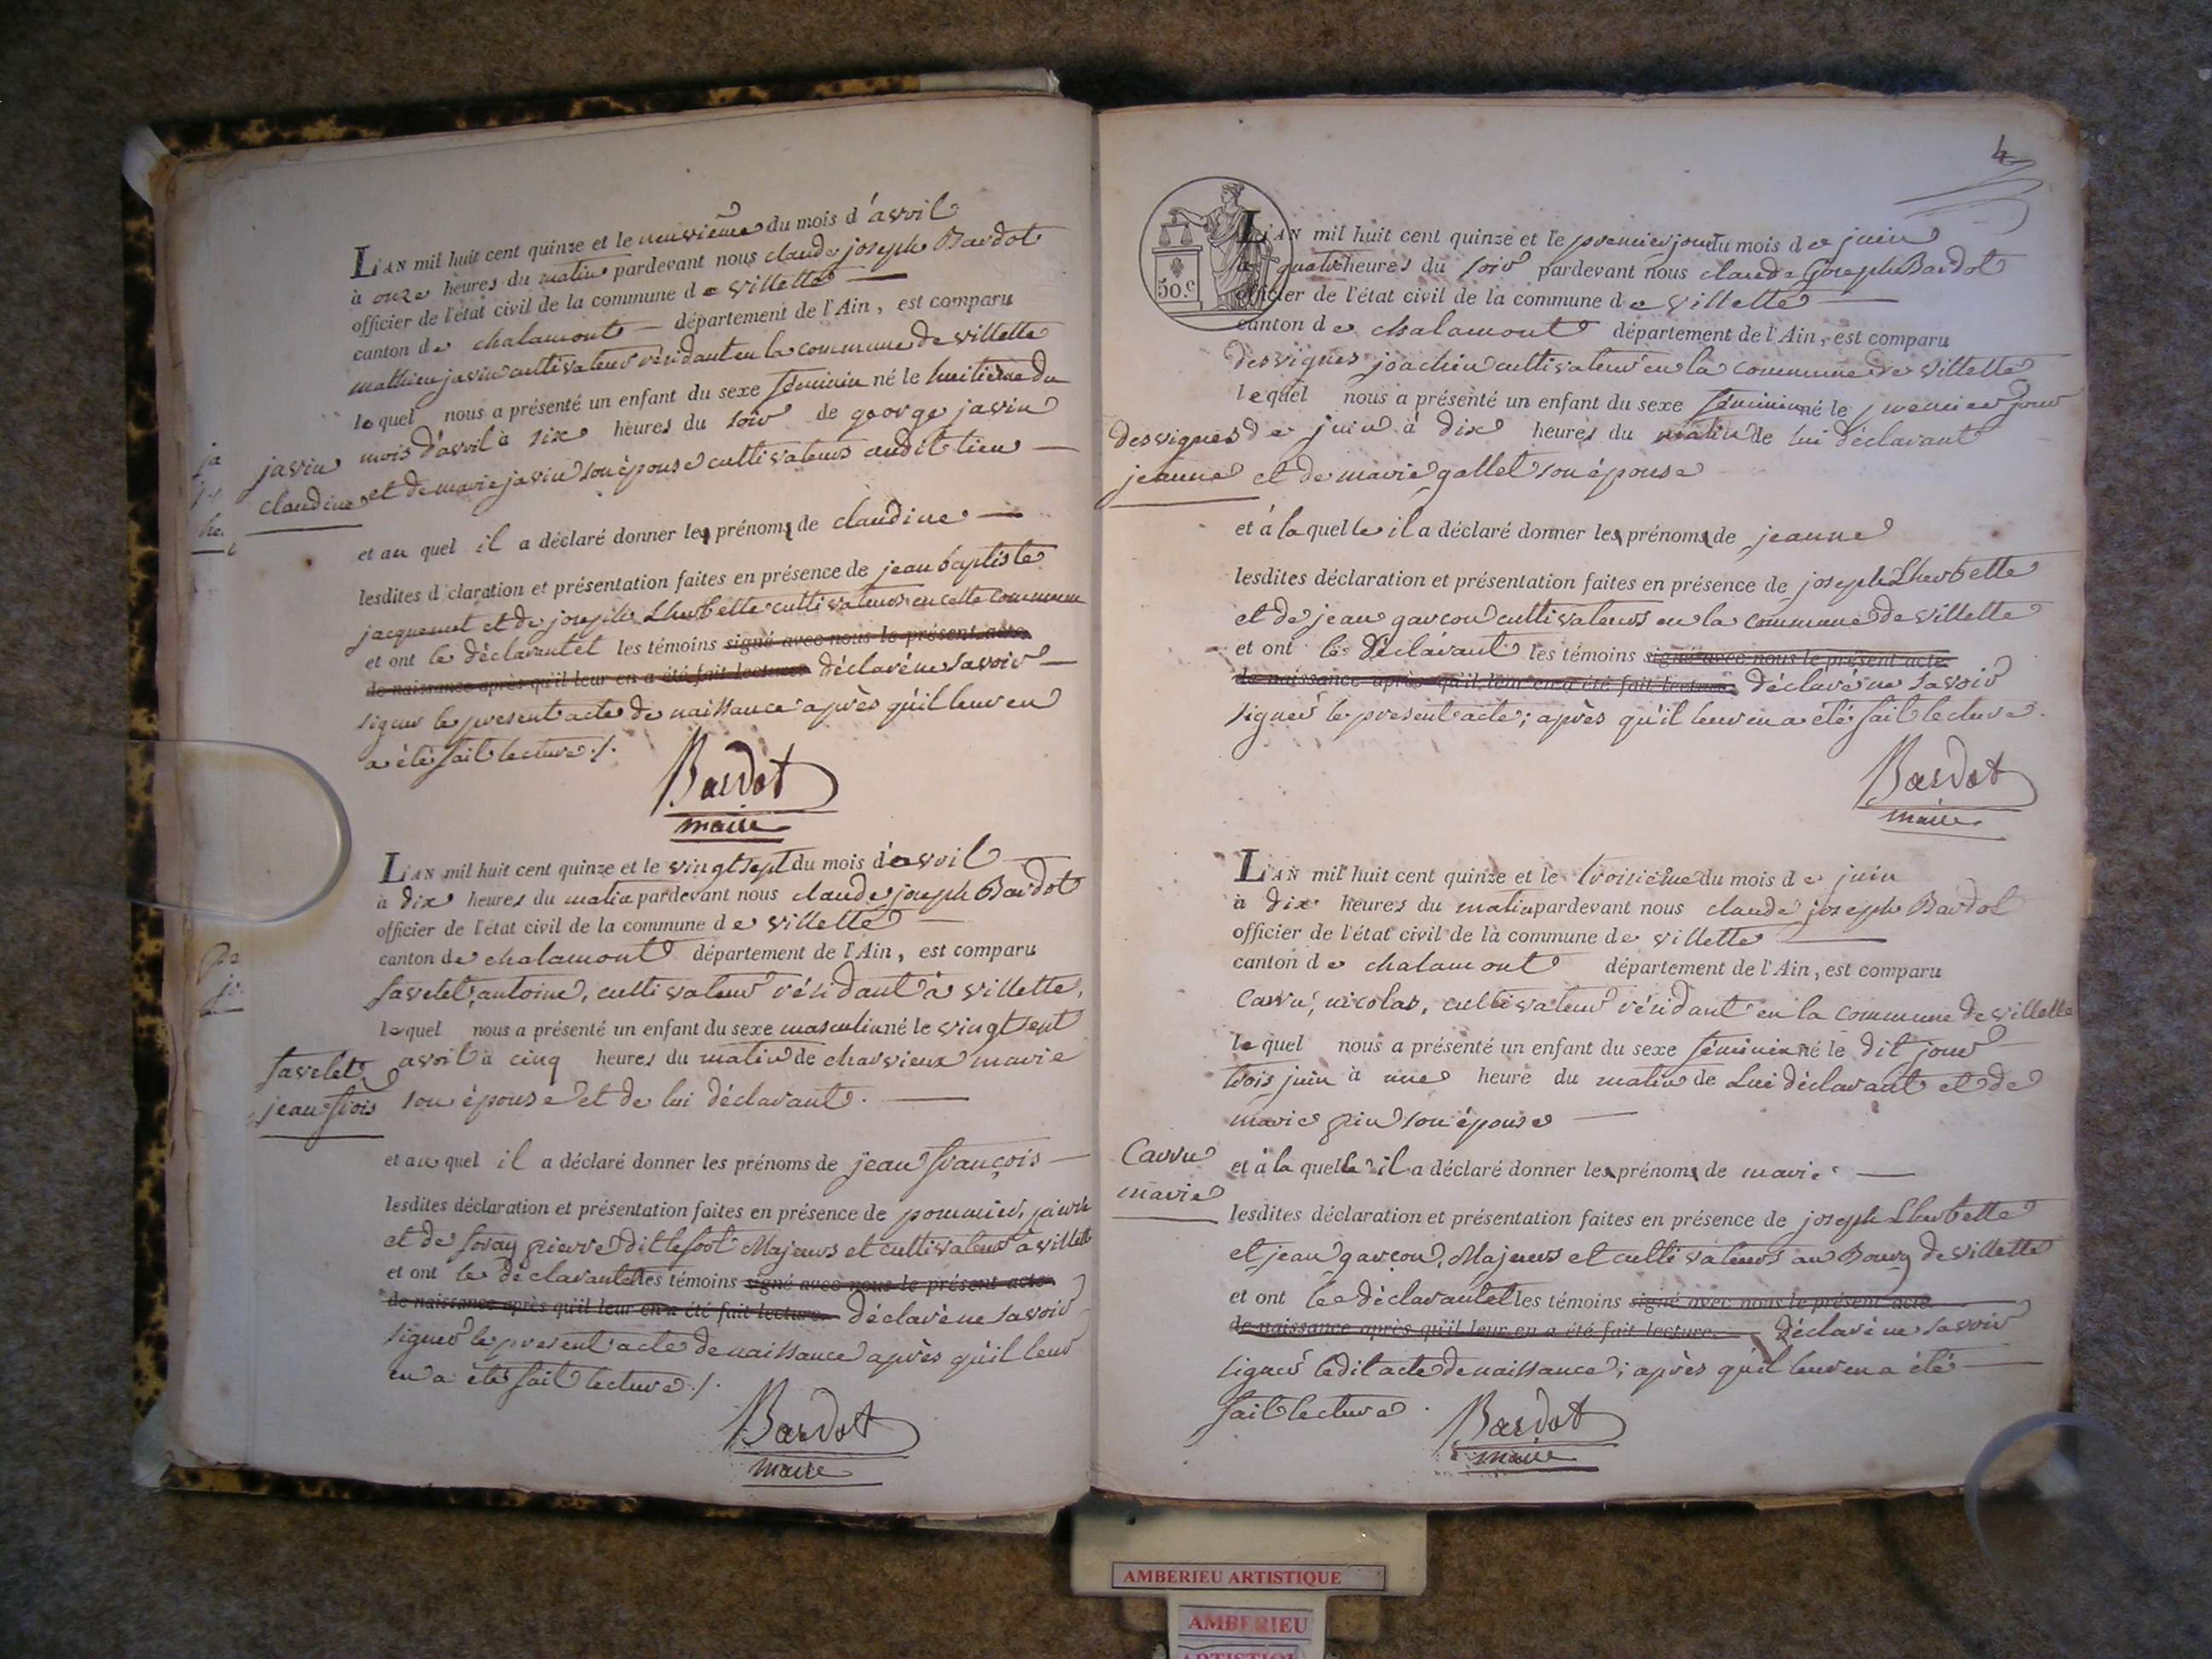 L'AN mil huit cent quinze et le neuvième du mois d'avril
à onze heures du matin pardevant nous claude joseph Bardot
officier de l'état civil de la commune de villette
canton de chalamont département de l'Ain, est comparu
mathieu javin cultivateur résidant en la commune de villette
lequel nous a présenté un enfant du sexe féminin né le huitième du
mois d'avril à six heures du soir de george javin
et de marie javin son épouse cultivateurs audit lieu
javin
claudine
et au quel il a déclaré donner les prénoms de claudine
lesdites d claration et présentation faites en présence de jean baptiste
jacquemet et de joseph Lherbette cultivateurs en cette commune
et ont le déclarant et les témoins signé avec nous le présent acte
de naissance après qu'il leur en a été fait lecture. déclaré ne savoir
signer le present acte de naissance après qu'il leur en
a été fait lecture ./.
Bardot
maire
L'AN mil huit cent quinze et le vingt sept du mois d'avril
à dix heures du matin pardevant nous claude joseph Bardot
officier de l'état civil de la commune de villette
canton de chalamont département de l'Ain, est comparu
favelet, antoine, cultivateur résidant à villette,
lequel nous a présenté un enfant du sexe masculin né le vingt sept
avril à cinq heures du matin de charvieux marie
son épouse et de lui déclarant.
favelet
jean fçois
et au quel il a déclaré donner les prénoms de jean françois
lesdites déclaration et présentation faites en présence de pommier,
et de foray pierre dit lefort Majeurs et cultivateurs à villette
et ont le déclarant et les témoins signé avec nous le présent acte
de naissance après qu'il leur en a été fait lecture. déclaré ne savoir
signer le present acte de naissance après qu'il leur
en a été fait lecture ./.
Bardot
maire
4
50.c
L'AN mil huit cent quinze et le premier jour du mois de juin
à quatre heures du soir pardevant nous claude Joseph Bardot
officier de l'état civil de la commune de villette
canton de chalamont département de l'Ain, est comparu
desvignes joachin cultivateur en la commune de villette
lequel nous a présenté un enfant du sexe féminin né le premier jour
de juin à dix heures du matin de lui déclarant
et de marie gallet son épouse
desvignes
jeanne
et à la quelle il a déclaré donner les prénoms de jeanne
lesdites déclaration et présentation faites en présence de joseph Lherbette
et de jean garçon cultivateurs en la commune de villette
et ont le déclarant les témoins signé avec nous le présent acte
de naissance après qu'il leur en a été fait lecture. déclaré ne savoir
signer le present acte; après qu'il leur en a été fait lecture.
Bardot
maire
L'AN mil huit cent quinze et le troisième du mois de juin
à dix heures du matin pardevant nous claude joseph Bardot
officier de l'état civil de la commune de villette
canton de chalamont département de l'Ain, est comparu
Carru, nicolas, cultivateur résidant en la commune de villette
lequel nous a présenté un enfant du sexe féminin né le dit jour
trois juin à une heure du matin de Lui déclarant et de
marie pin son épouse
Carru
marie
et à la quelle il a déclaré donner les prénoms de marie
lesdites déclaration et présentation faites en présence de joseph Lherbette
et jean garçon, Majeurs et cultivateurs au Bourg de villette
et ont le déclarant et les témoins signé avec nous le présent acte
de naissance après qu'il leur en a été fait lecture. déclaré ne savoir
signer ledit acte de naissance; après qu'il leur en a été
fait lecture.
Bardot
maire
AMBERIEU ARTISTIQUE
AMBERIEU
ARTISTIQUE